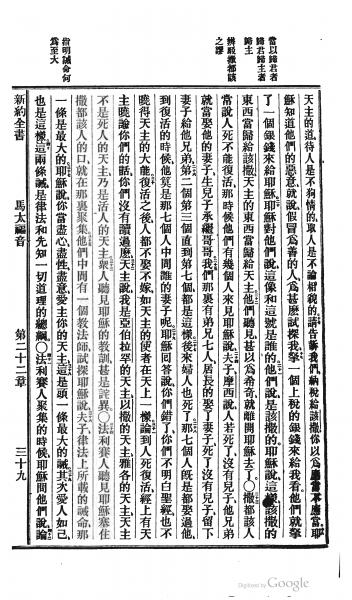 當以歸君者
歸君歸主者
歸主
辨駁撒都該
之謬
指明誡命何
為至大
天主的道待人是不狥情的取人是不論相貌的請告訴我們納稅給該撒你以爲應當不應當耶
穌知道他們的惡意就說假冒爲善的人爲甚麼試探我拏一個上稅的銀錢來給我看他們就拏
了一個銀錢來給耶穌耶穌對他們說這像和這號是誰的他們說是該撒的耶穌說這樣該撒的
東西當歸給該撒天主的東西當歸給天主他們聽見甚以爲希奇就離開耶穌去了〇撒都該人
常說人死不能復活那時他們有幾個人來見耶穌說夫子摩西說人若死了沒有兒子他兄弟
就當娶他的妻子生兒子承繼哥哥我們那裏有弟兄七人居長的娶了妻子死了沒有兒子留下
妻子給他兄弟第二個第三個直到第七個都是這樣後來婦人也死了那七個人旣是都娶過他
到復活的時候他莫是那七個人中間誰的妻子呢耶穌回答說你們錯了你們不明白聖經也不
曉得天主的大能復活之後人都不娶不嫁如天主的使者在天上一樣論到人死復活經上有天
主曉諭你們的話你們沒有讀過麼天主說我是亞伯拉罕的天主以撒的天主雅各的天主天主
不是死人的天主乃是活人的天主衆人聽見耶穌的敎訓甚是詫異〇法利賽人聽見耶穌塞住
撒都該人的口就在那裏聚集他們中間有一個敎法師試探耶穌說夫子律法上所載的誡命那
一條是最大的耶穌說你當盡心盡性盡意愛主你的天主這是頭一條最大的誡其次愛人如己
也是這樣這兩條誡是律法和先知一切道理的總綱〇法利賽人聚集的時候耶穌問他們說論
新約全書
馬太福音
第二十二章
三十九
Digitized by Google